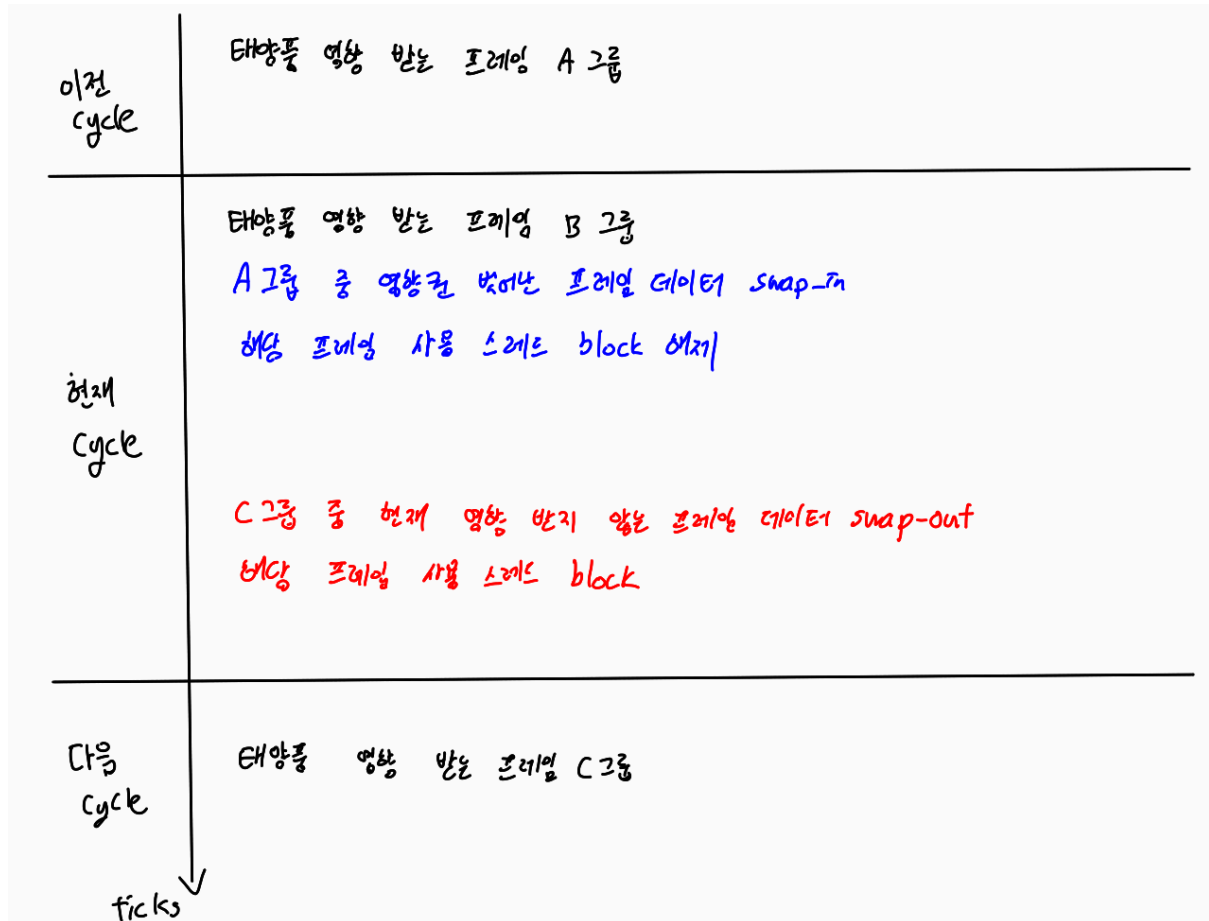 이전
cycle
태양풍 영향 받는 프레임 A 그룹
현재
cycle
태양풍 영향 받는 프레임 B 그룹
A 그룹 중 영향권 벗어난 프레임 데이터 swap_in
해당 프레임 사용 스레드 block 해제
C 그룹 중 현재 영향 받지 않는 프레임 데이터 swap-out
해당 프레임 사용 스레드 block
다음
cycle
태양풍 영향 받는 프레임 C 그룹
ticks